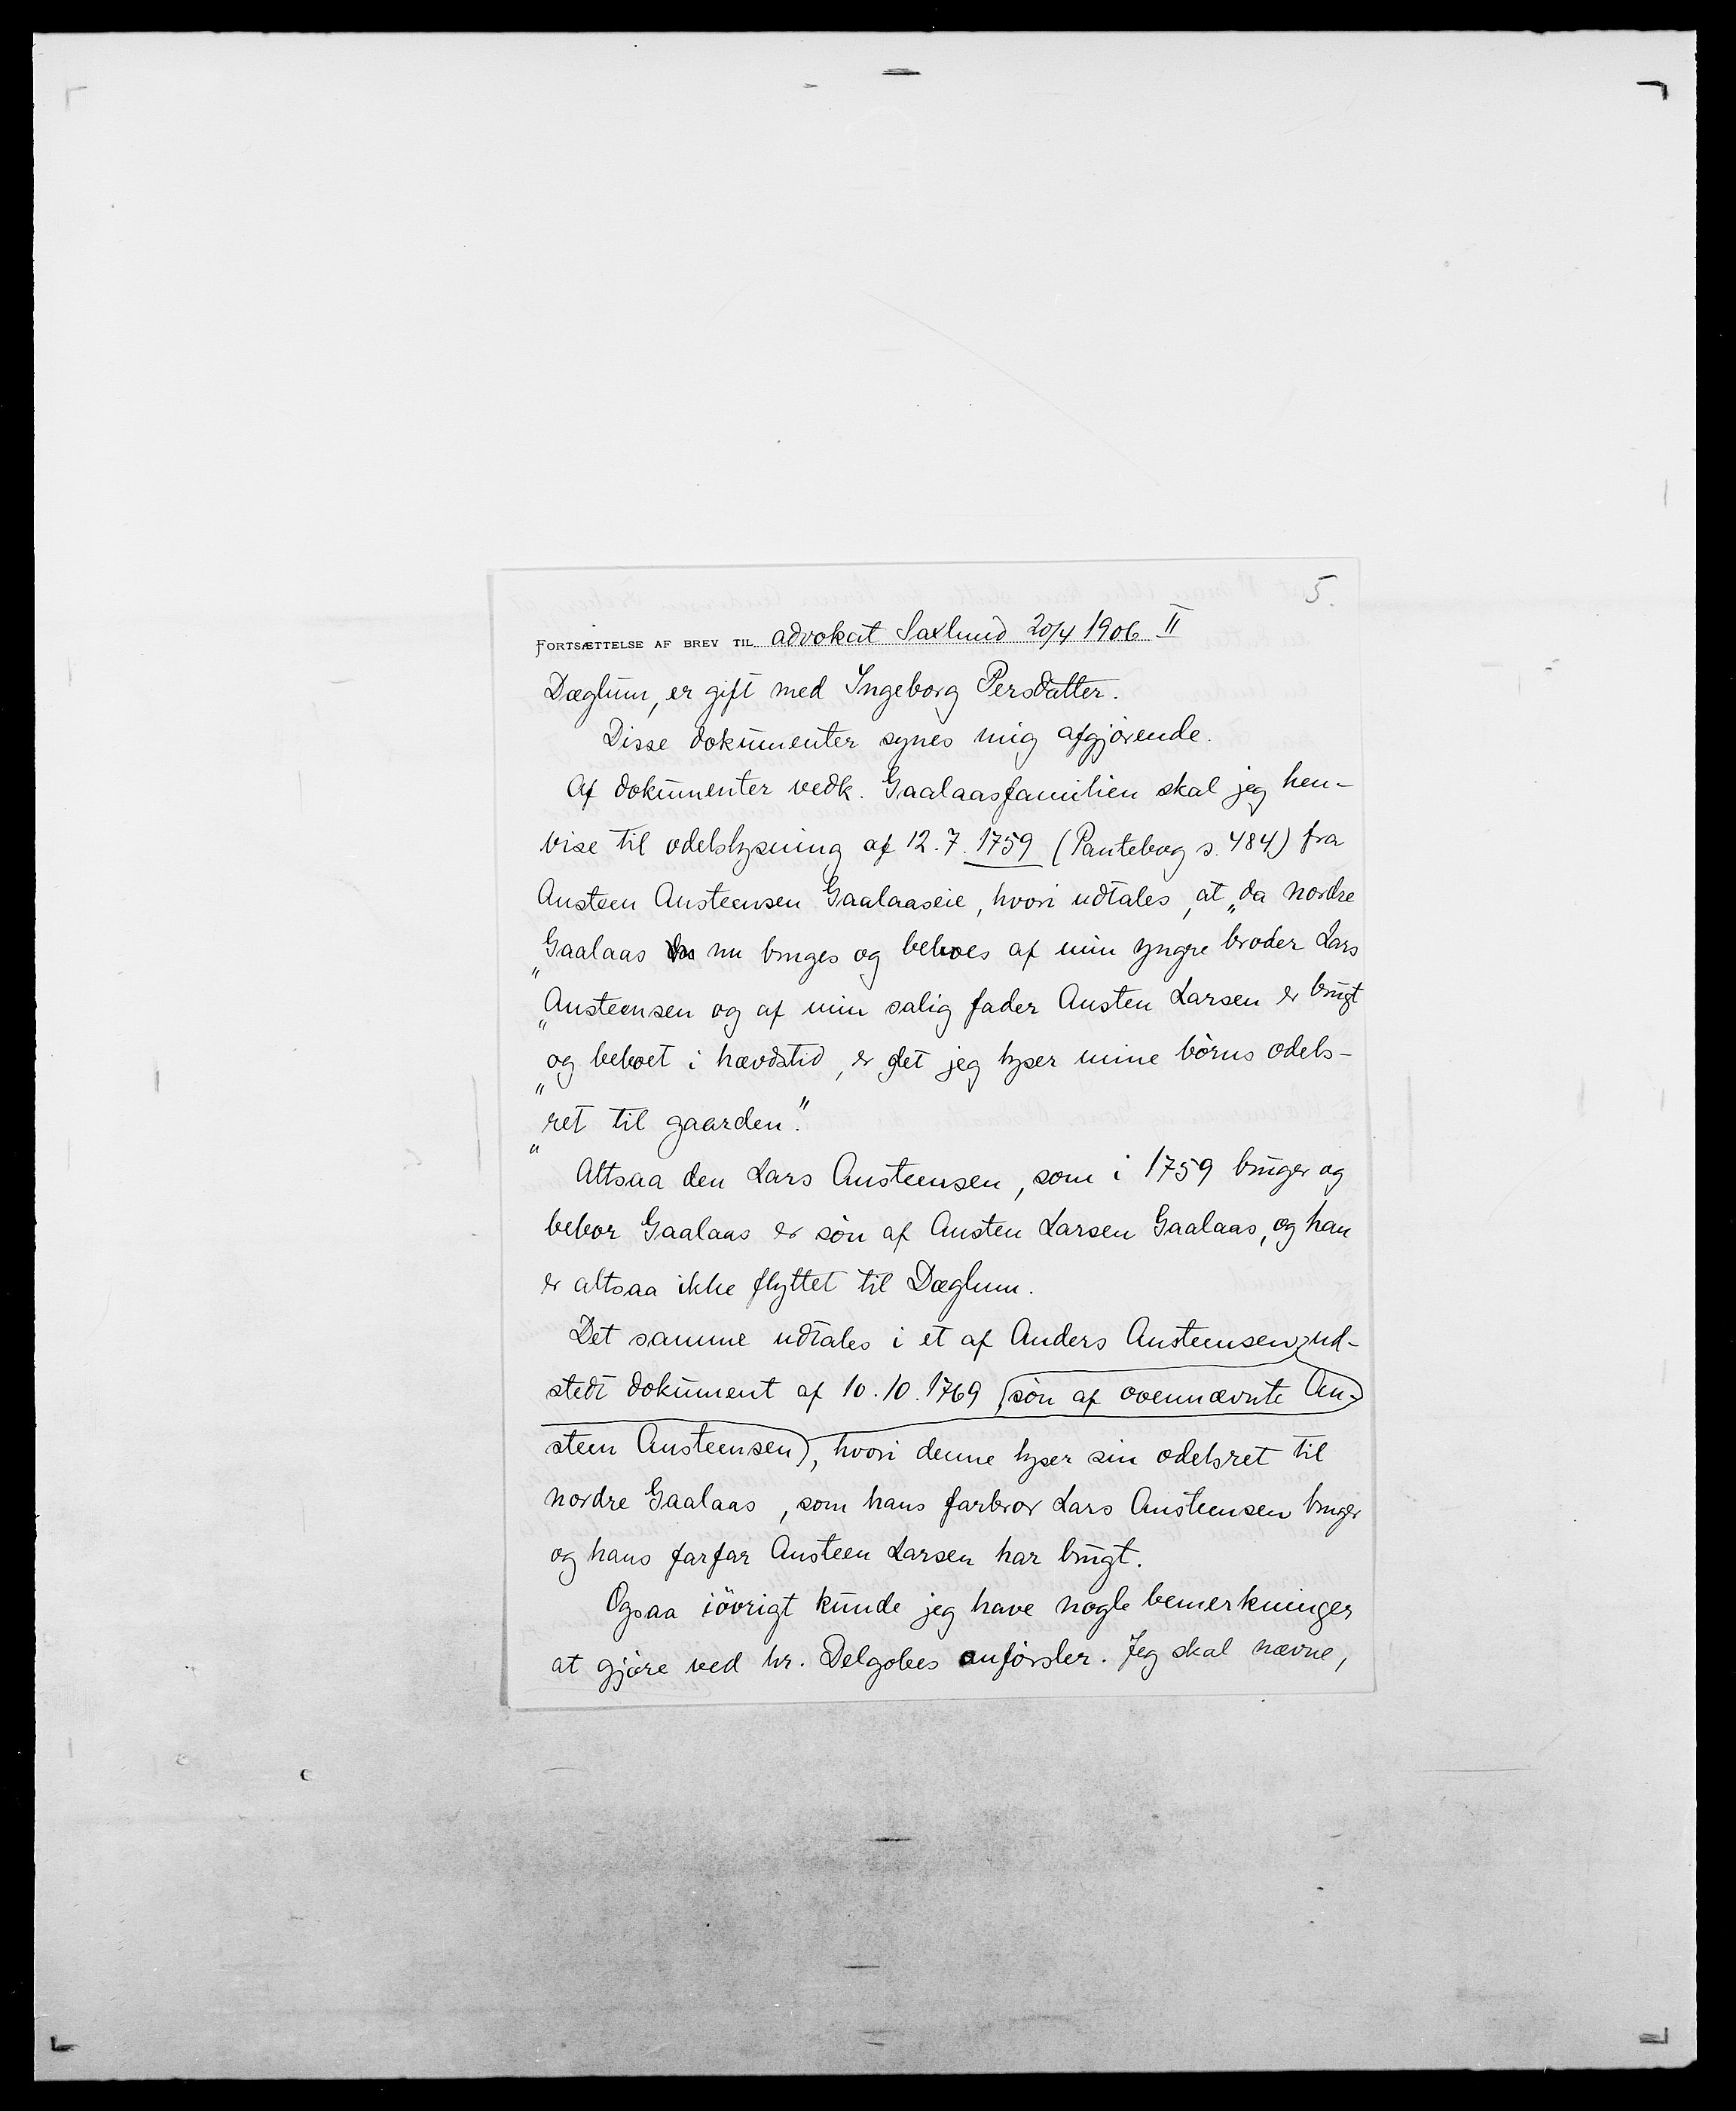 5.
FORTSÆTTELSE AF BREV TIL advokat Saxlund 20/4 1906 II
Dæglum, er gift med Ingeborg Persdatter.
Disse dokumenter synes mig afgjørende.
Af dokumenter vedk. Gaalaasfamilien skal jeg hen-
vise til odelslysning af 12.7.1759 (Pantebog s. 484) fra
Austeen Austeensen Gaalaaseie, hvori udtales, at „da nordre
„Gaalaas nu bruges og beboes af min yngre broder Lars
„Austeensen og af min salig fader Austen Larsen er brugt
„og beboet i hævdstid, er det jeg lyser mine børns odels-
„ret til gaarden."
Altsaa den Lars Austeensen, som i 1759 bruger og
bebor Gaalaas er søn af Austen Larsen Gaalaas, og han
er altsaa ikke flyttet til Dæglum.
Det samme udtales i et af Anders Austeensen ud-
stedt dokument af 10.10.1769 (søn af ovennævnte Au-
steen Austeensen), hvori denne lyser sin odelsret til
nordre Gaalaas, som hans farbror Lars Austeensen bruger
og hans farfar Austeen Larsen har brugt.
Ogsaa iøvrigt kunde jeg have nogle bemerkninger
at gjøre ved hr. Delgobes anførsler. Jeg skal nævne,